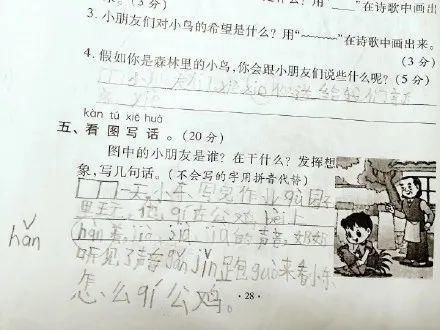 来。(3分) 用"____"在诗歌中画出
3. 小朋友们对小鸟的希望是什么?用"﹏﹏"在诗歌中画出来。
(3分)
4. 假如你是森林里的小鸟,你会跟小朋友们说些什么呢?(5分)
kàn tú xiě huà
五、看图写话。(20分)
图中的小朋友是谁?在干什么?发挥想
象,写几句话。(不会写的字用拼音代替)
一天,小乐写完作业qù园子
里玩,他qí在公鸡上
hǎn着,jià,jià,jià的声音,奶奶
听见了声音gǎn jǐn跑guò来看小乐
怎么qí公鸡。
hǎn
·28·